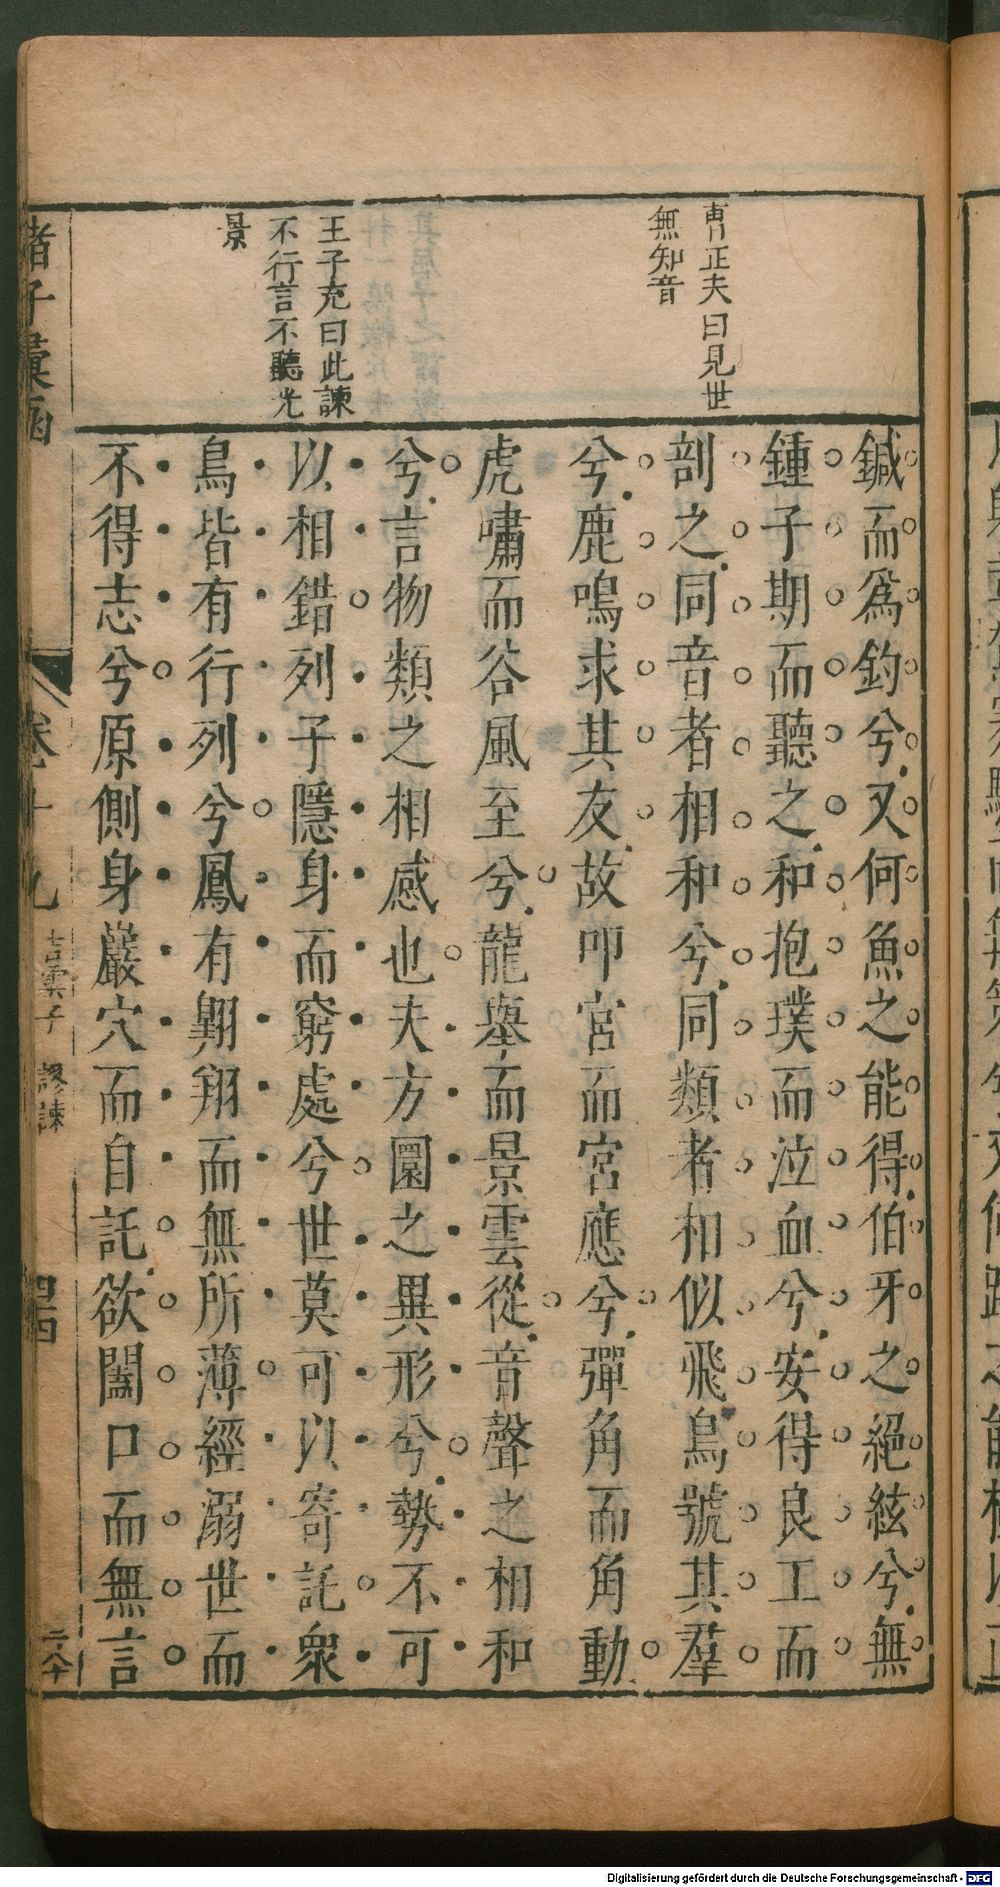 曹正夫曰見世
無知音
王子充曰此諫
不行言不聽光
景
鍼而爲釣兮又何魚之能得伯牙之絕絃兮無
鍾子期而聽之和抱璞而泣血兮安得良工而
剖之同音者相和兮同類者相似飛鳥號其羣
兮鹿鳴求其友故叩宮而宮應兮彈角而角動
虎嘯而谷風至兮龍舉而景雲從音聲之相和
兮言物類之相感也夫方圜之異形兮勢不可
以相錯列子隱身而窮處兮世莫可以寄託衆
鳥皆有行列兮鳳有翺翔而無所薄經溺世而
不得志兮原側身巖穴而自託欲闔口而無言
諸子彙函 卷十九 吉雲子 謬諫 四四
Digitalisierung gefördert durch die Deutsche Forschungsgemeinschaft - DFG